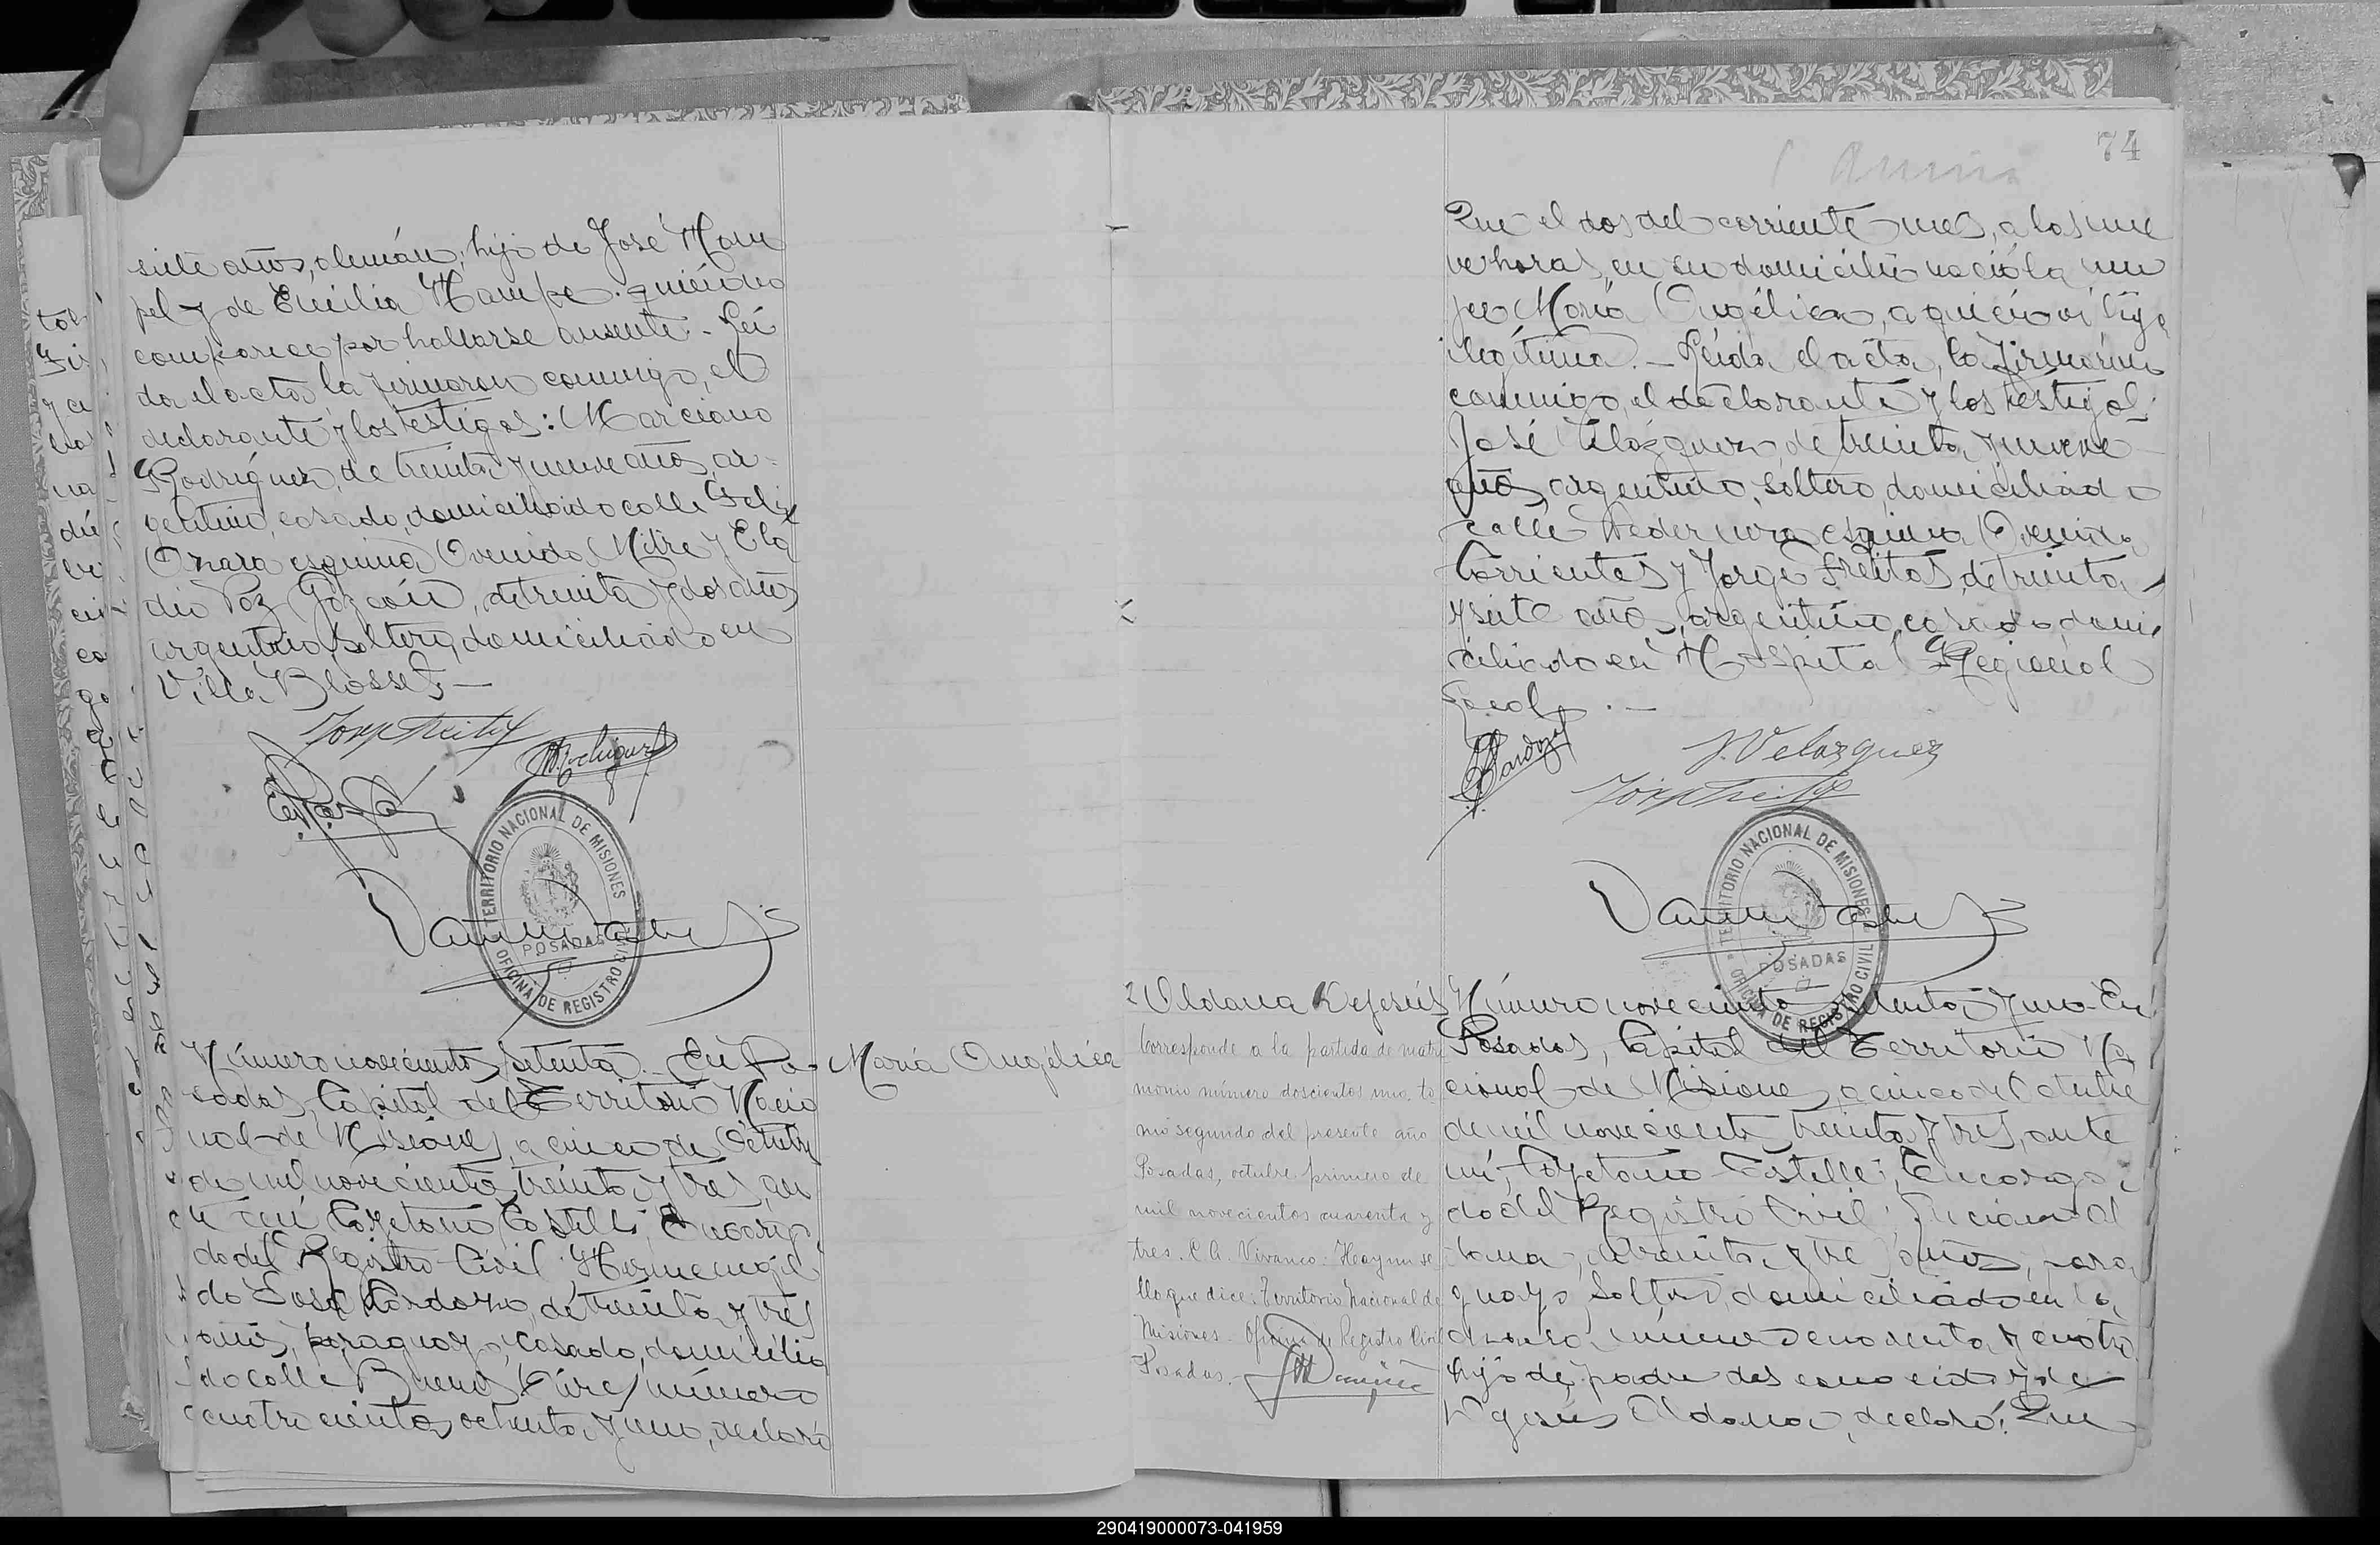 siete años, alemán, hijo de José Ham
pel y de Emilia Hampe. quién no
comparece por hallarse ausente.- Leí
da el acta la firmaron conmigo, el
declarante y los testigos: Marciano
Rodríguez, de treinta y nueve años, ar-
gentino, casado, domiciliado calle Felix
Azara esquina Avenida Mitre y Ela
dio Paz, de treinta y dos años
argentino, soltero, domiciliado en
Villa Blosset.-
TERRITORIO NACIONAL DE MISIONES
POSADAS
OFICINA DE REGISTRO CIVIL
Número novecientos setenta.- En Po-
sadas, Capital del Territorio Nacio
nal de Misiones, a cinco de Octubre
de mil novecientos treinta y tres, an
te mí Cayetano Castelli, Encarga
do del Registro Civil: Hermenegil
do José Cardozo, de treinta y tres
años, paraguayo, casado, domicilia
do calle Buenos Aires número
cuatrocientos ochenta y uno, declaró
María Angélica
74
Que el dos del corriente mes, a las nue
ve horas, en su domicilio nació la mu
jer María Angélica, a quien vi hija
legítima.- Leída el acta, la firmaron
conmigo, el declarante y los testigos:
José Velázquez, de treinta y nueve
años, argentino, soltero, domiciliado
calle Pedernera esquina Avenida
Corrientes y Jorge Freitas, de treinta
y siete años, argentino, casado, domi
ciliado en Hospital Regional
Local.-
J. Velazquez
TERRITORIO NACIONAL DE MISIONES
POSADAS
OFICINA DE REGISTRO CIVIL
Aldana Dejesús
Corresponde a la partida de matri
monio número doscientos uno. to
mo segundo del presente año
Posadas, octubre primero de
mil novecientos cuarenta y
tres. C. A. Vivanco. Hay un se
llo que dice: Territorio Nacional de
Misiones. Oficina de Registro Civil
Posadas.-
Número novecientos setenta y uno- En
Posadas, Capital del Territorio Na
cional de Misiones, a cinco de Octubre
de mil novecientos treinta y tres, ante
mí, Cayetano Castelli, Encarga
do del Registro Civil: Al
dana, de treinta y tres años, para
guayo, soltero, domiciliado en la
chacra número noventa y cuatro
hijo de padre desconocido y de
Dejesús Aldana, declaró: Que
290419000073-041959